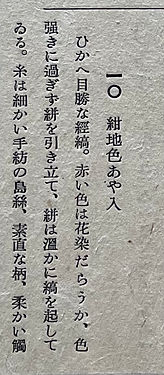 一〇　紺地色あや入
ひかへ目勝な經縞。赤い色は花染だらうか、色
强きに過ぎず絣を引き立て、絣は溫かに縞を起して
ゐる。糸は細かい手紡の島絲、素直な柄、柔かい觸